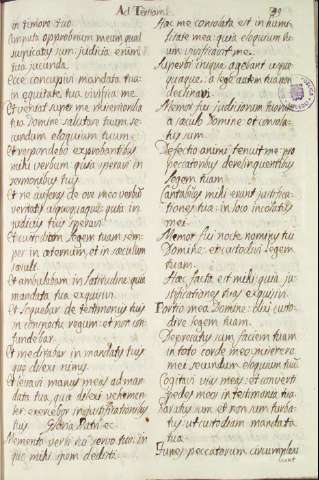 Ad Tertiam
in timore tuo.
Amputa opprobrium meum quod
suspicatus sum: judicia enim
tua jucunda.
Ecce concupivi mandata tua:
in equitate tua vivifica me.
Et veniat super me misericordia
tua Domine: salutare tuum se-
cundum eloquium tuum.
Et respondebo exprobantibus
mihi verbum: quia speravi in
sermonibus tuis.
Et ne auferas de ore meo verbũ
veritatis usquequaque: quia in
judiciis tuis speravi.
Et custodiam legem tuam sem-
per: in æternum, et in sæculum
sæculi.
Et ambulabam in latitudine: quia
mandata tua exquisivi.
Et loquebar de testimoniis tuis
in conspectu regum: et non con-
fundebar.
Et meditabar in mandatis tuis
que dilexi nimis.
Et levavi manus meas ad man-
data tua, que dilexi vehemen-
ter: exercebor in justificationibus
tuis. Gloria Patri, &c.
Memento verbi tui servo tuo: in
quo mihi spem dedisti.
Hæc me consolata est in humi-
litate mea: quia eloquium tu-
um vivificavit me.
Superbi inique agebant usque
quaque: a lege autem tua non
declinavi.
Memor fui judiciorum tuorum
a sæculo Domine: et consola-
tus sum.
Defectio animi tenuit me: pro
peccatoribus derelinquentibus
legem tuam.
Cantabiles mihi erant justifica-
tiones tuæ: in loco incolatus
mei.
Memor fui nocte nominis tui
Domine: et custodivi legem
tuam.
Hæc facta est mihi: quia ju-
stificationes tuas exquisivi.
Portio mea Domine: dixi custo-
dire legem tuam.
Deprecatus sum faciem tuam
in toto corde meo: miserere
mei secundum eloquium tuũ
Cogitavi vias meas: et converti
pedes meos in testimonia tua
Paratus sum, et non sum turba-
tus: ut custodiam mandata
tua.
Funes peccatorum circumplexi